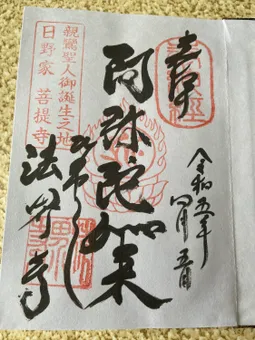 奉拝
令和五年
四月
阿弥陀如来
親鸞聖人御誕生之地
日野家 菩提寺
法界寺